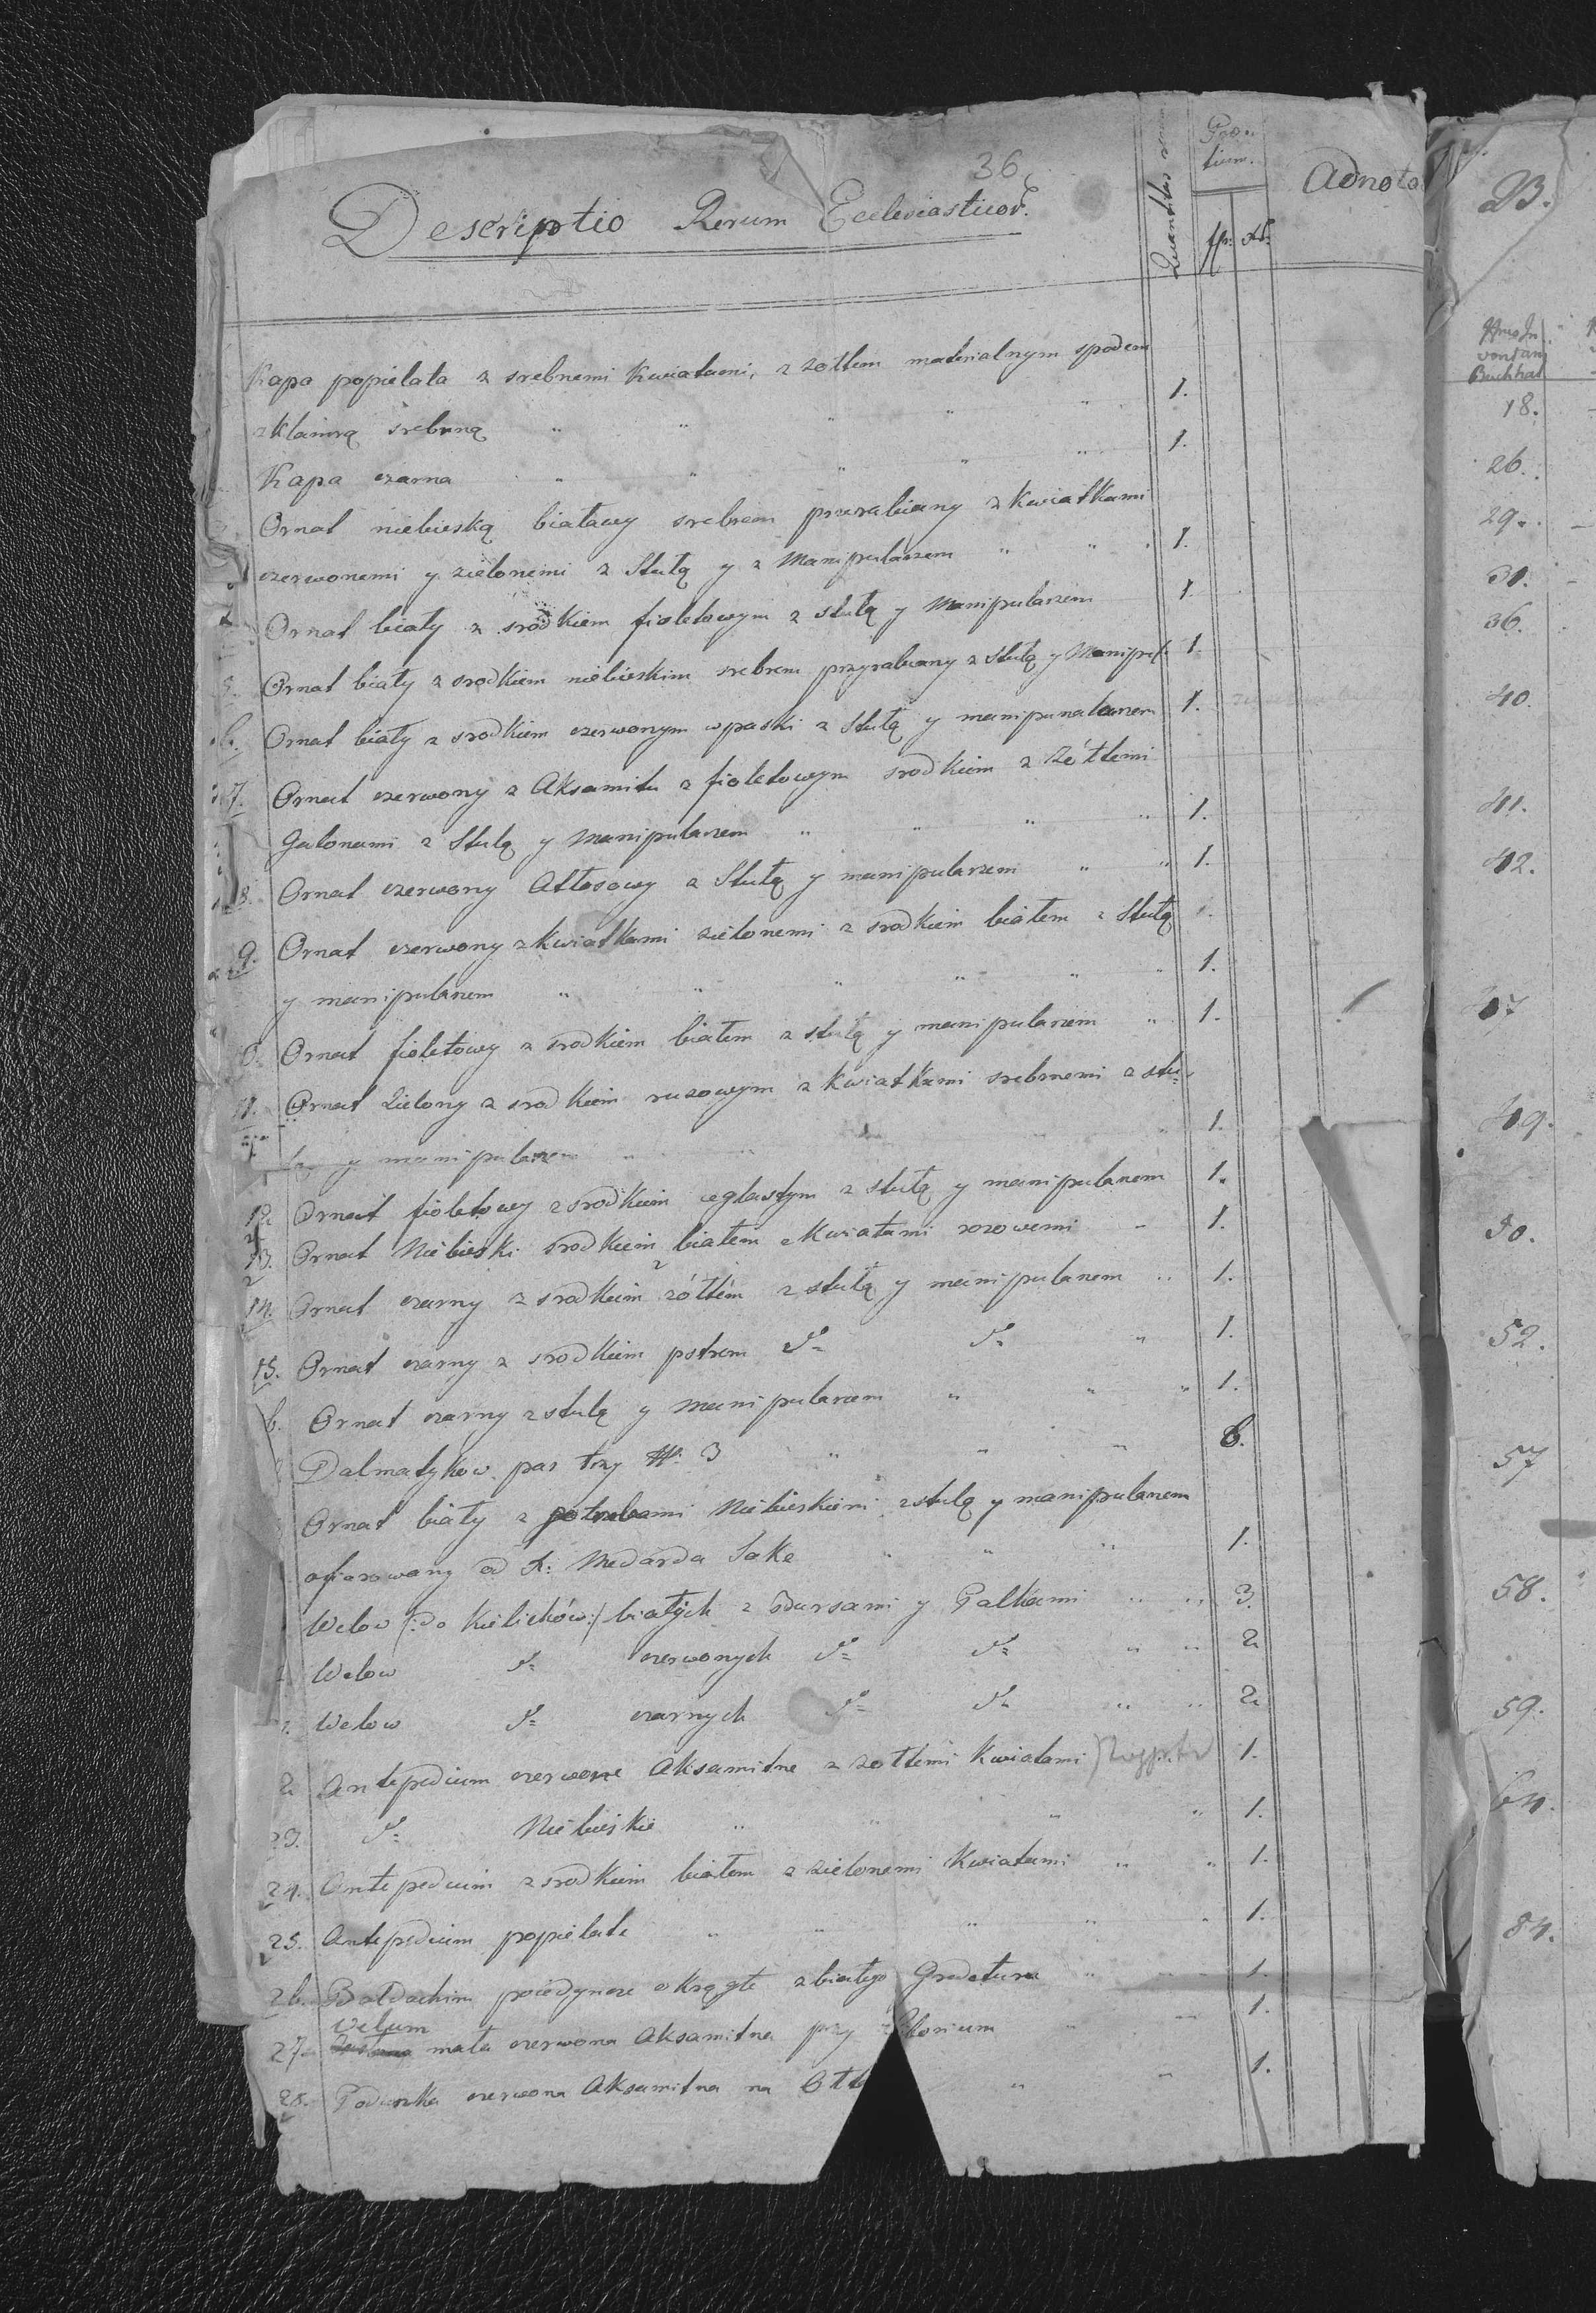 36
Descriptio Rerum Ecclesiasticor.
Quantitas
Pretium.
fr: xr:
Adnota
Kapa popielata z srebnemi Kwiatami, z zołtem materialnym spodem
z Klamrą srebrną " " " " " 1.
Kapa czarna " " " " " 1.
Ornat niebieską białawy srebrem przerabiany z Kwiatkami
czerwonemi y zielonemi z Stułą y z Manipularzem " " " 1.
Ornat biały z srodkiem fioletowym z stułą y Manipularzem 1.
5. Ornat biały z srodkiem niebieskim srebrem przyrabiany z Stułą y Manipul: 1.
6. Ornat biały z srodkiem czerwonym w paski z Stułą y manipunalarzem 1.
7. Ornat czerwony z Aksamitu z fioletowym srodkiem z Zółtemi
Galonami z Stułą y Manipularzem " " " " 1.
8. Ornat czerwony Atłasowy z Stułą y manipularzem " " 1.
9. Ornat czerwony z Kwiatkami zielonemi z srodkiem białem z Stułą
y manipularzem " " " " " " 1.
10. Ornat fioletowy z srodkiem białem z stułą y manipularzem " 1.
11. Ornat Zielony z srodkiem ruzowym z Kwiatkami srebrnemi z stu-
łą y manipularzem " " " 1.
12. Ornat fioletowy z srodkiem ceglastym z stułą y manipularzem 1.
13. Ornat Niebieski z srodkiem białem z Kwiatami rozowemi - 1.
14. Ornat czarny z srodkiem zółtem z stułą y manipularzem .. 1.
15. Ornat czarny z srodkiem pstrem do do " 1.
6. Ornat czarny z stułą y Manipularzem " " " 1.
Dalmatykow par trzy N: 3 " " " 6.
Ornat biały z potrebami Niebieskiemi z stułą y manipularzem
ofiarowany od X: Medarda Sake " " " 1.
Welow /:do Kielichów:/ białych z Bursami y Palkami .. .. 3.
Welow do czerwonych do do " " 2.
Welow do czarnych do do " " 2.
2 Antepedium czerwone Aksamitne z zołtemi Kwiatami 1.
23. do Niebieskie " " " " 1.
24. Antepedium z srodkiem białem z zielonemi Kwiatami " " 1.
25. Antepedium popielate " " " " " 1.
26. Baldachim poiedyncze okrągłe z białego Gredeturu " " " 1.
Velum
27. mała czerwona Aksamitna przy Ciborium " " 1.
28. Poduszka czerwona Aksamitna na Ołt " " 1.
B.
18.
26.
29.
31.
36.
40.
41.
42.
47
49.
50.
52.
57
58.
59.
64.
84.